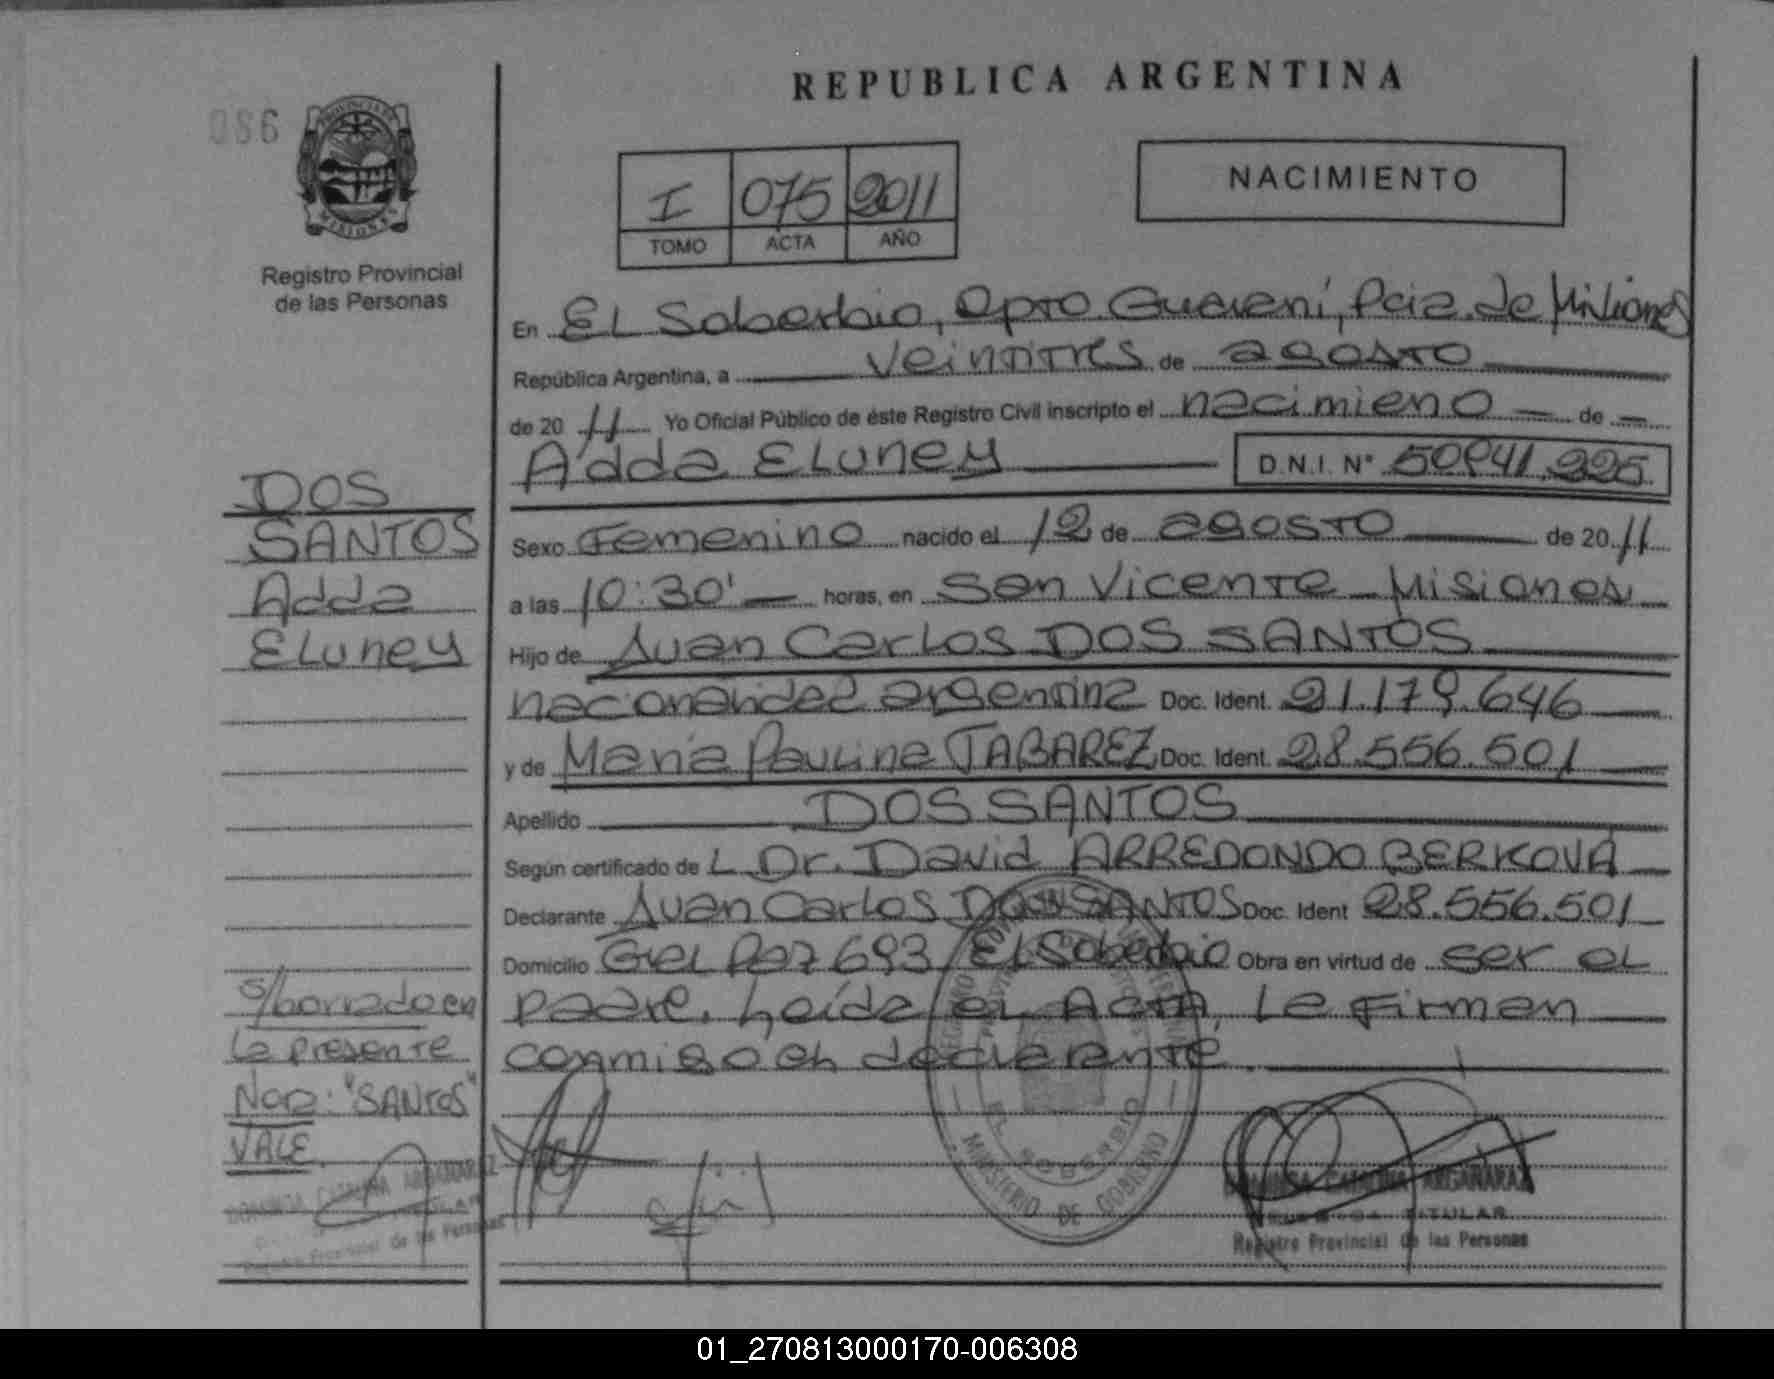 REPUBLICA ARGENTINA
086
I 075 2011
TOMO ACTA AÑO
NACIMIENTO
Registro Provincial
de las Personas
En EL Soberbio, Dpto. Guaraní, Pcia. de Misiones
República Argentina, a veintitres de agosto
de 20 11 Yo Oficial Público de éste Registro Civil inscripto el nacimieno de
Adda ELuney D.N.I. Nº 50.941.225
DOS
SANTOS
Adda
ELuney
Sexo Femenino nacido el 12 de agosto de 20 11
a las 10:30' horas, en San Vicente Misiones
Hijo de Juan Carlos DOS SANTOS
nacionalidad argentina Doc. Ident. 21.179.646
y de María Paulina TABAREZ Doc. Ident. 28.556.501
Apellido DOS SANTOS
Según certificado de L Dr. David ARREDONDO BERKOVA
Declarante Juan Carlos DOS SANTOS Doc. Ident 28.556.501
Domicilio Gral Paz 693 EL Soberbio Obra en virtud de ser el
padre. Leída el Acta, La Firman
conmigo el declarante.
s/borrado en
la presente
"SANTOS"
VALE
MINISTERIO DE GOBIERNO
EL SOBERBIO
CATALINA ARGAÑARAZ
TITULAR
Registro Provincial de las Personas
01_270813000170-006308